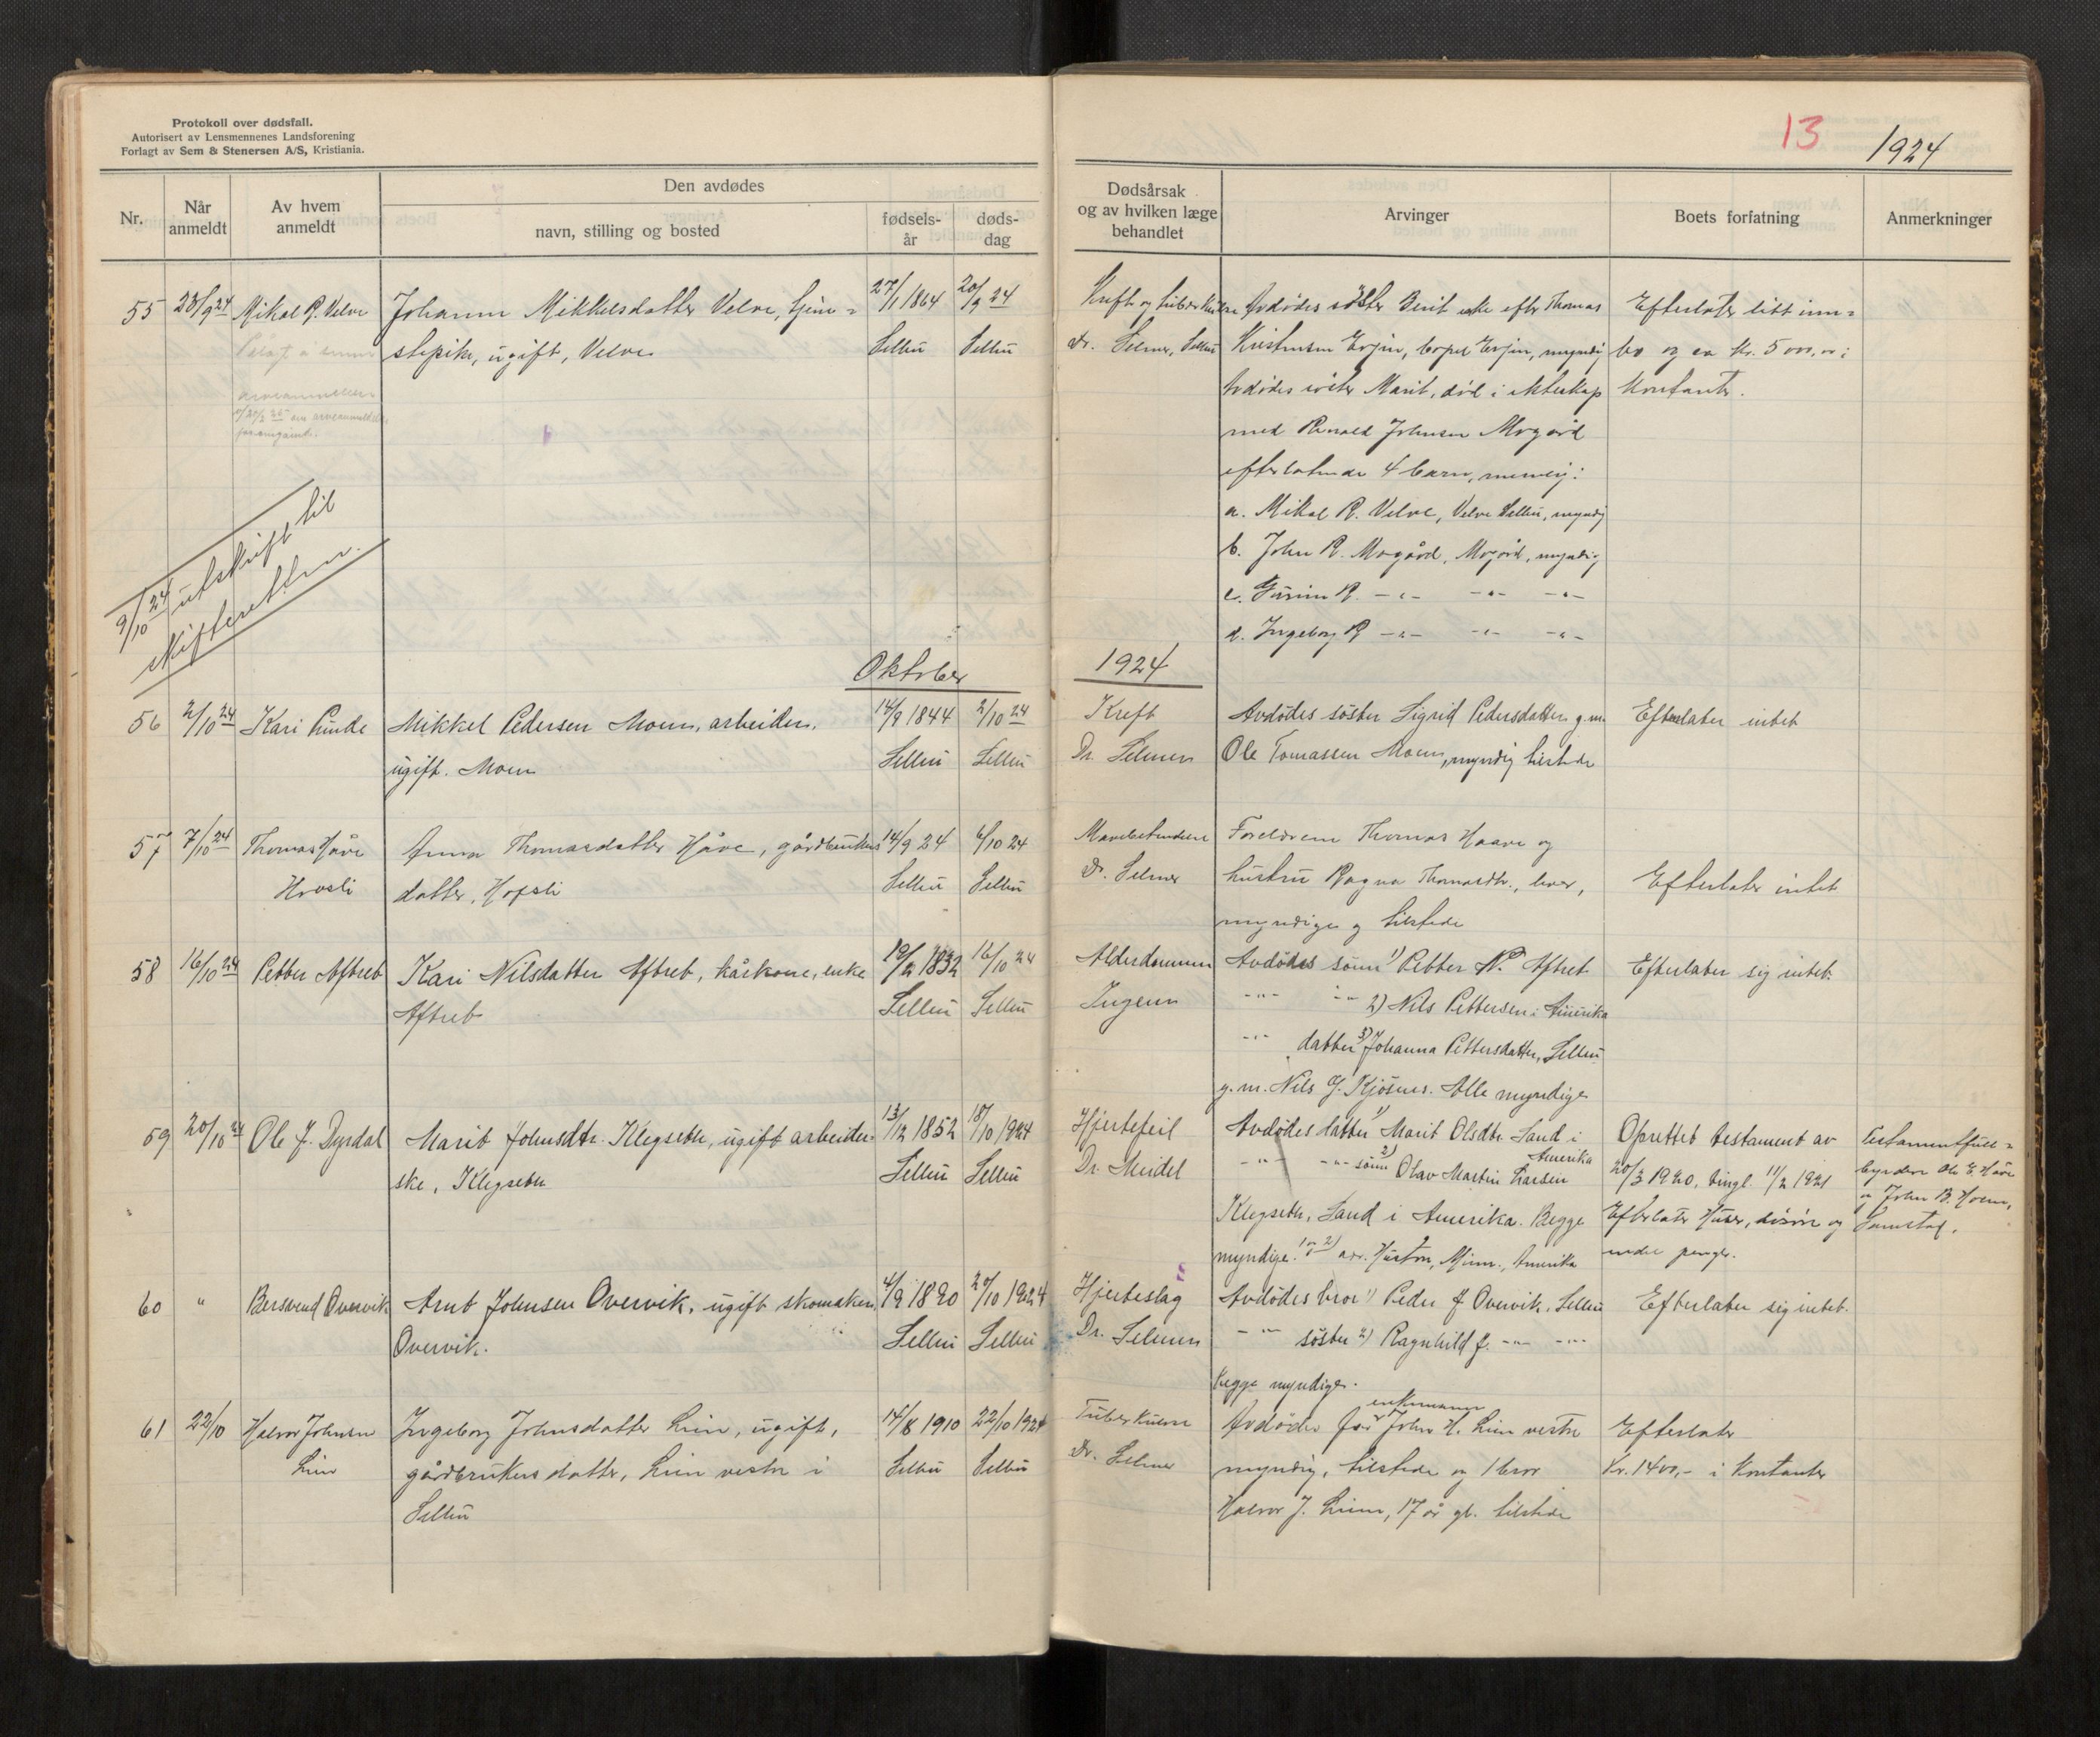 Protokoll over dødsfall.
Autorisert av Lensmennenes Landsforening
Forlagt av Sem & Stenersen A/S, Kristiania.
Nr.
Når anmeldt
Av hvem anmeldt
Den avdødes
navn, stilling og bosted
fødsels-år
døds-dag
55 23/9 24 Mikal R. Velve Johanna Mikkelsdatter Velve, tjene= 27/1 1864 20/9 24
stepike, ugift, Velve Selbu Selbu
9/10 24 utskrift til
skifteretten.
Oktober
56 2/10 24 Kari Rinde Mikkel Pedersen Moen, arbeider, 14/9 1844 2/10 24
ugift. Moen Selbu Selbu
57 7/10 24 Thomas Håve Anna Thomasdatter Håve, gårdbrukers 14/9 24 6/10 24
Hovsli datter, Hofsli Selbu Selbu
58 16/10 24 Petter Aftret Kari Nilsdatter Aftret, kårkone, enke 1832 16/10 24
Aftret Selbu Selbu
59 20/10 24 Ole J. Dyrdal Marit Johnsdtr. Klegseth, ugift arbeider- 13/12 1852 18/10 1924
ske, Klegseth Selbu Selbu
60 " Bersvend Overvik Arnt Johnsen Overvik, ugift skomaker, 4/9 1890 20/10 1924
Overvik. Selbu Selbu
61 22/10 Halvor Johnsen Ingeborg Johnsdatter Lien, ugift, 14/8 1910 22/10 1924
Lien gårdbrukers datter, Lien vestre i Selbu Selbu
Selbu
13
1924
Dødsårsak og av hvilken læge behandlet
Arvinger
Boets forfatning
Anmerkninger
Kreft og tuberkulose Avdødes søster Berit enke efter Thomas Efterlater litt inn=
Dr. Selmer, Selbu Kristensen Evjen, bopel Evjen, myndig bo og ca kr. 5000,00 i
Avdødes søster Marit, død i ekteskap kontanter.
med Renald Johnsen Mogård
efterlatende 4 barn, nemlig:
a. Mikal R. Velve, Velve Selbu, myndig
b. John R. Mogård, Mogård, myndig
c. Gurine R. -"- -"- -"-
d. Ingeborg R -"- -"- -"-
1924
Kreft Avdødes søster Sigrid Pedersdatter g.m. Efterlater intet
Dr. Selmer Ole Tomassen Moen, myndig tilstede
Foreldrene Thomas Haave og
Dr. Selmer hustru Ragna Thomasdtr., lever, Efterlater intet
myndige og tilstede
Alderdommen Avdødes sønn 1) Petter P. Aftret Efterlater sig intet.
Ingen -"- -"- 2) Nils Pettersen i Amerika
-"- datter 3) Johanna Pettersdatter, Selbu
g.m. Nils J. Kjøsnes. Alle myndige
Hjertefeil Avdødes datter 1) Marit Olsdtr. Sand i Amerika Oprettet testament av Testamentfull=
Dr. Meidel -"- -"- sønn 2) Olav Martin Larsen 20/3 1920, tingl. 11/2 1921 byrdere Ole E Håve
Klegseth, Sand i Amerika. Begge Efterlater Huser, løsøre og John B. Hoem,
myndige. 1 og 2) adr. Huston, Minn., Amerika endel penger. Samstad.
Hjerteslag Avdødes bror 1) Peder J Overvik, Selbu Efterlater sig intet.
Dr. Selmer -"- søster 2) Ragnhild J. -"- -"-
begge myndige.
Tuberkulose Avdødes far enkemann John H. Lien vestre Efterlater
Dr. Selmer myndig, tilstede og 1 bror kr. 1400,- i kontanter
Halvor J. Lien, 17 år gl. tilstede